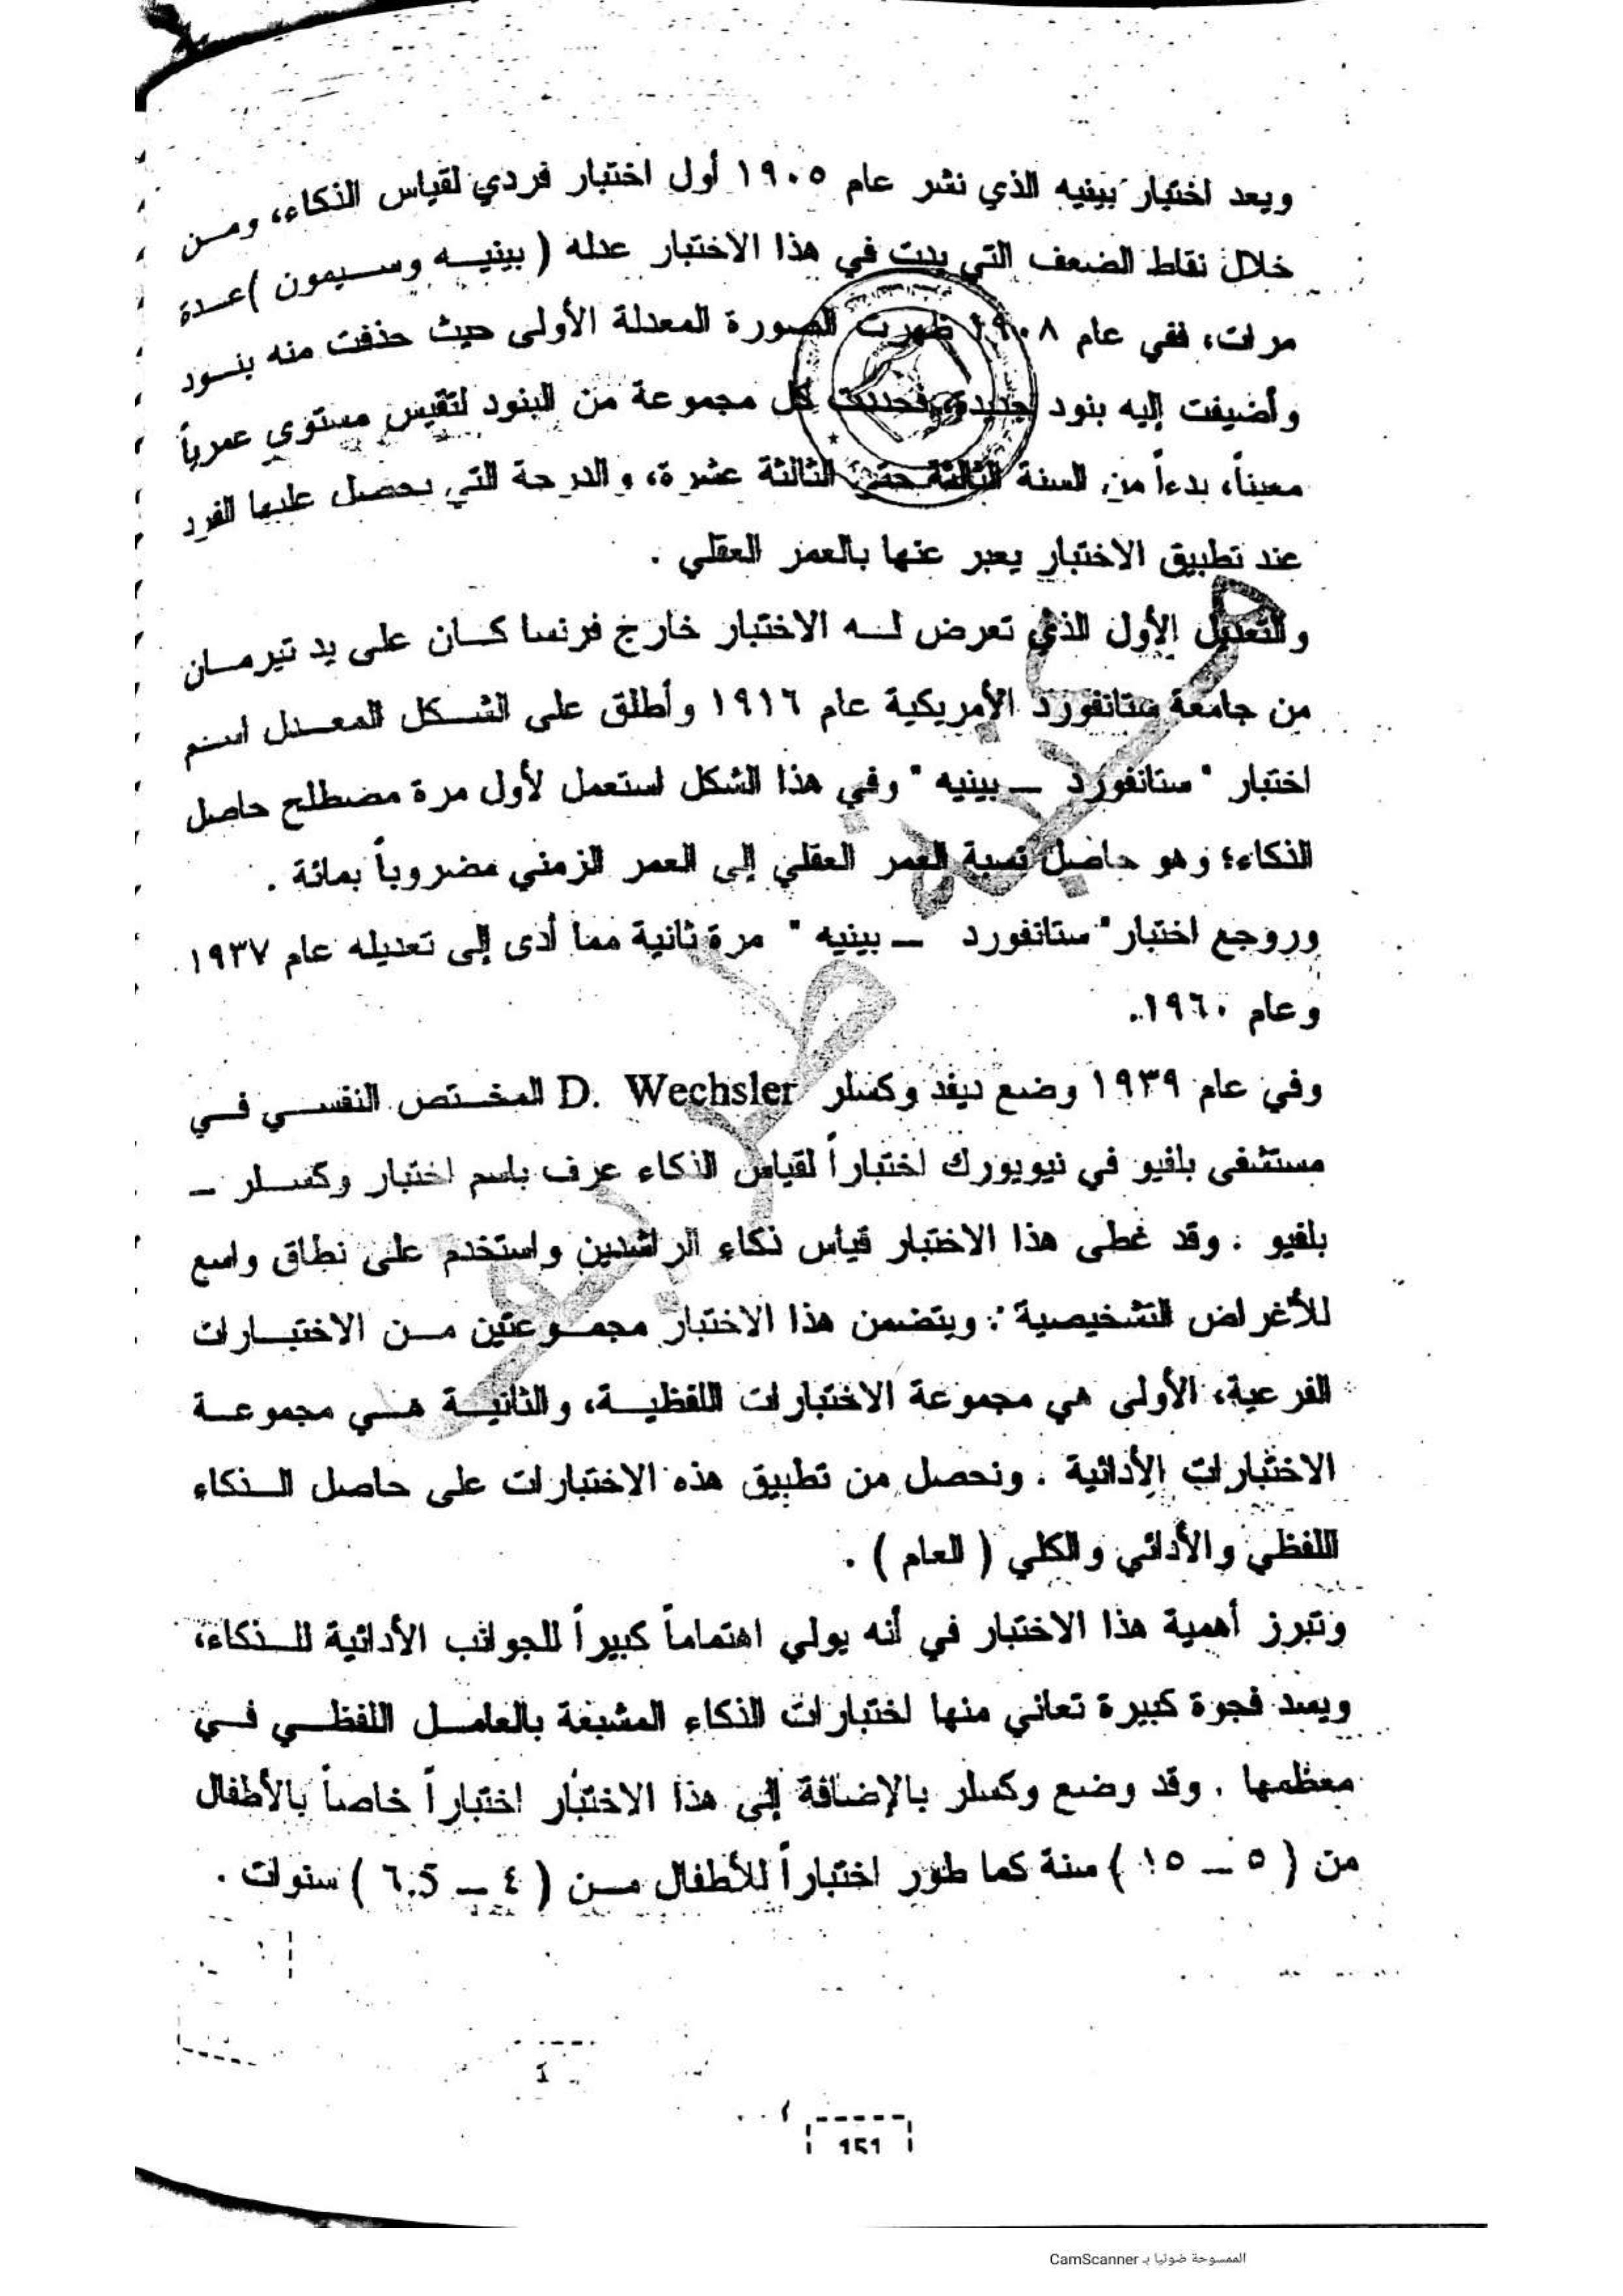 ويعد اختبار بينيه الذي نشر عام ١٩٠٥ أول اختبار فردي لقياس الذكاء، ومـن
خلال نقاط الضعف التي بدت في هذا الاختبار عدله ( بينيـه وسـيمون )عـدة
مرات، ففي عام ١٩٠٨ ظهرت الصورة المعدلة الأولى حيث حذفت منه بنـود
وأضيفت إليه بنود جديدة، وحددت كل مجموعة من البنود لتقيس مستوى عمرياً
معيناً، بدءاً من السنة الثالثة حتى الثالثة عشرة، والدرجة التي يحصل عليها الفرد
عند تطبيق الاختبار يعبر عنها بالعمر العقلي .
والتعديل الأول الذي تعرض لـه الاختبار خارج فرنسا كـان على يد تيرمـان
من جامعة ستانفورد الأمريكية عام ١٩١٦ وأطلق على الشـكل المعـدل اسـم
اختبار " ستانفورد – بينيه " وفي هذا الشكل استعمل لأول مرة مصطلح حاصل
الذكاء؛ وهو حاصل نسبة العمر العقلي إلى العمر الزمني مضروباً بمائة .
وروجع اختبار" ستانفورد – بينيه " مرة ثانية مما أدى إلى تعديله عام ١٩٣٧
وعام ١٩٦٠.
وفي عام ١٩٣٩ وضع ديفد وكسلر D. Wechsler المخـتص النفسـي فـي
مستشفى بلفيو في نيويورك اختباراً لقياس الذكاء عرف باسم اختبار وكسـلر –
بلفيو . وقد غطى هذا الاختبار قياس ذكاء الراشدين واستخدم على نطاق واسع
للأغراض التشخيصية . ويتضمن هذا الاختبار مجمـوعتين مـن الاختبـارات
الفرعية، الأولى هي مجموعة الاختبارات اللفظيـة، والثانيـة هـي مجموعـة
الاختبارات الأدائية . ونحصل من تطبيق هذه الاختبارات على حاصل الـذكاء
اللفظي والأدائي والكلي ( العام ) .
وتبرز أهمية هذا الاختبار في أنه يولي اهتماماً كبيراً للجوانب الأدائية للـذكاء،
ويسد فجوة كبيرة تعاني منها اختبارات الذكاء المشبعة بالعامـل اللفظـي فـي
معظمها . وقد وضع وكسلر بالإضافة إلى هذا الاختبار اختباراً خاصاً بالأطفال
من ( ٥ – ١٥ ) سنة كما طور اختباراً للأطفال مـن ( ٤ – ٦.5 ) سنوات .
151
الممسوحة ضوئيا بـ CamScanner